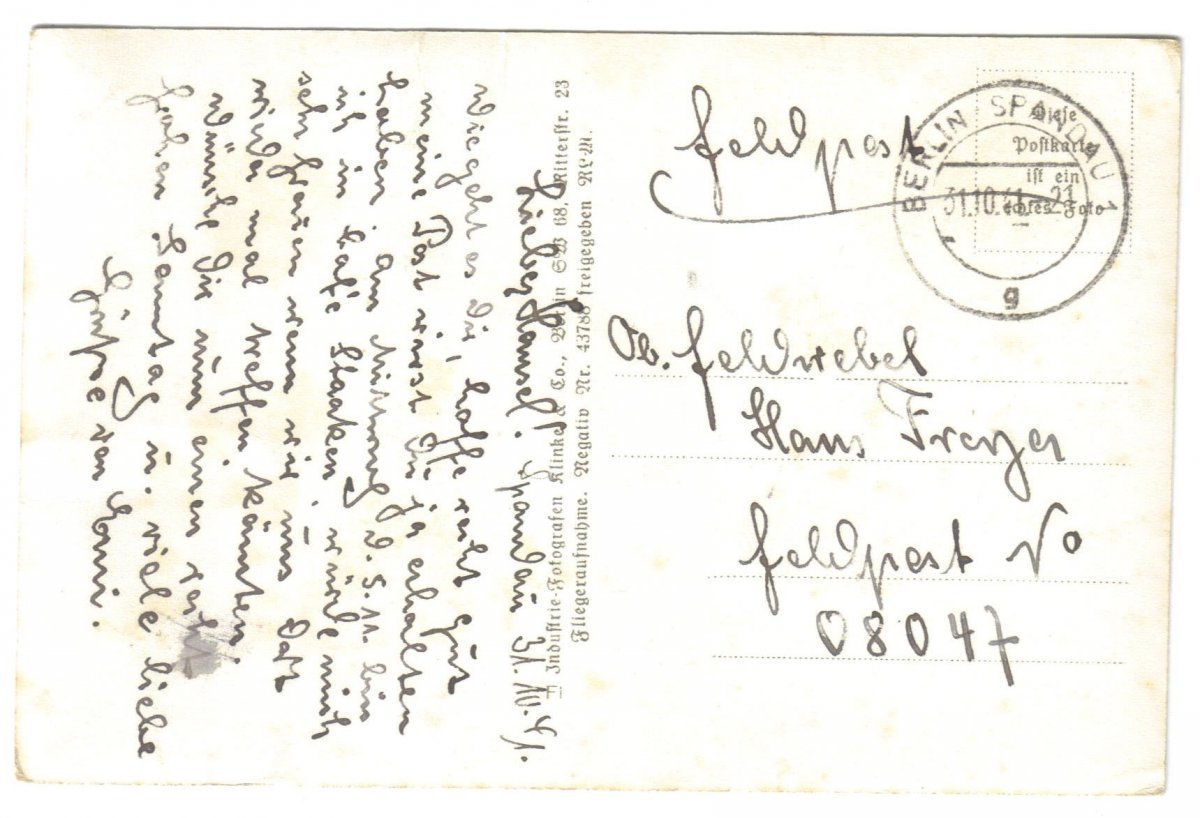 Lieber Hansel! Spandau 31.10.41.
Wie geht es dir, hoffe recht gut
meine Post wirst Du ja erhalten
haben am Mittwoch d. 5.11. bin
ich in Café Staaken, würde mich
sehr freuen wenn wir uns dort
wieder mal treffen könnten.
Wünsche Dir nun einen recht
frohen Sonntag u. viele liebe
Grüße von
Induſtrie-Fotografen Klinke & Co., Berlin SW 68, Ritterſtr. 23
Fliegeraufnahme. Negativ Nr. 43788 freigegeben RLM.
Feldpost
BERLIN SPANDAU 1
31.10.41.-21
g
Dieſe
Poſtkarte
iſt ein
echtes Foto
Ob. Feldwebel
Hans Freyer
Feldpost No
08047